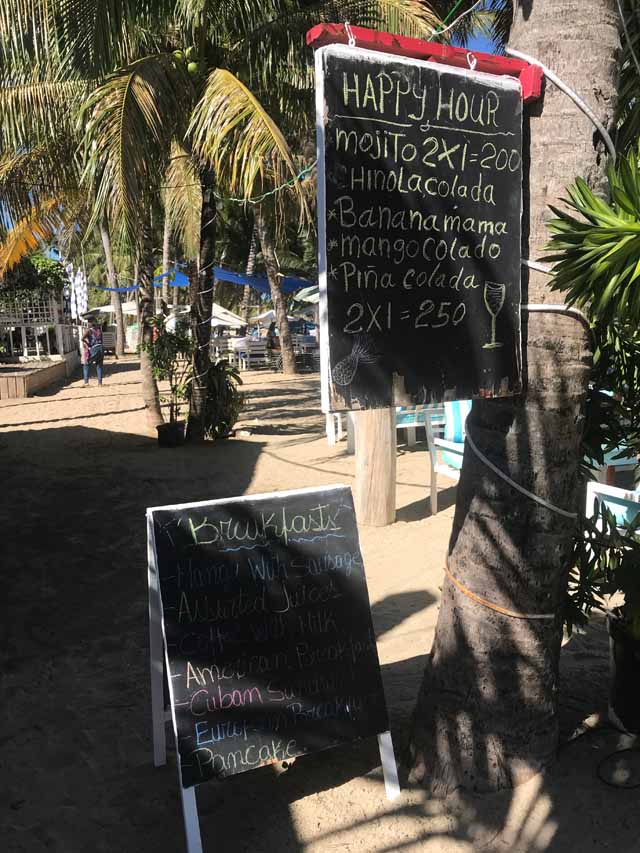 HAPPY HOUR
mojito 2X1=200
CHINOLACOLADA
*Bananamama
*mangocolado
*Piña colada
2X1=250
Breakfasts
-Mangú With Sausage
-Assorted Juices
-Coffee With Milk
-American Breakfast
-Cuban
-European
-Pancake